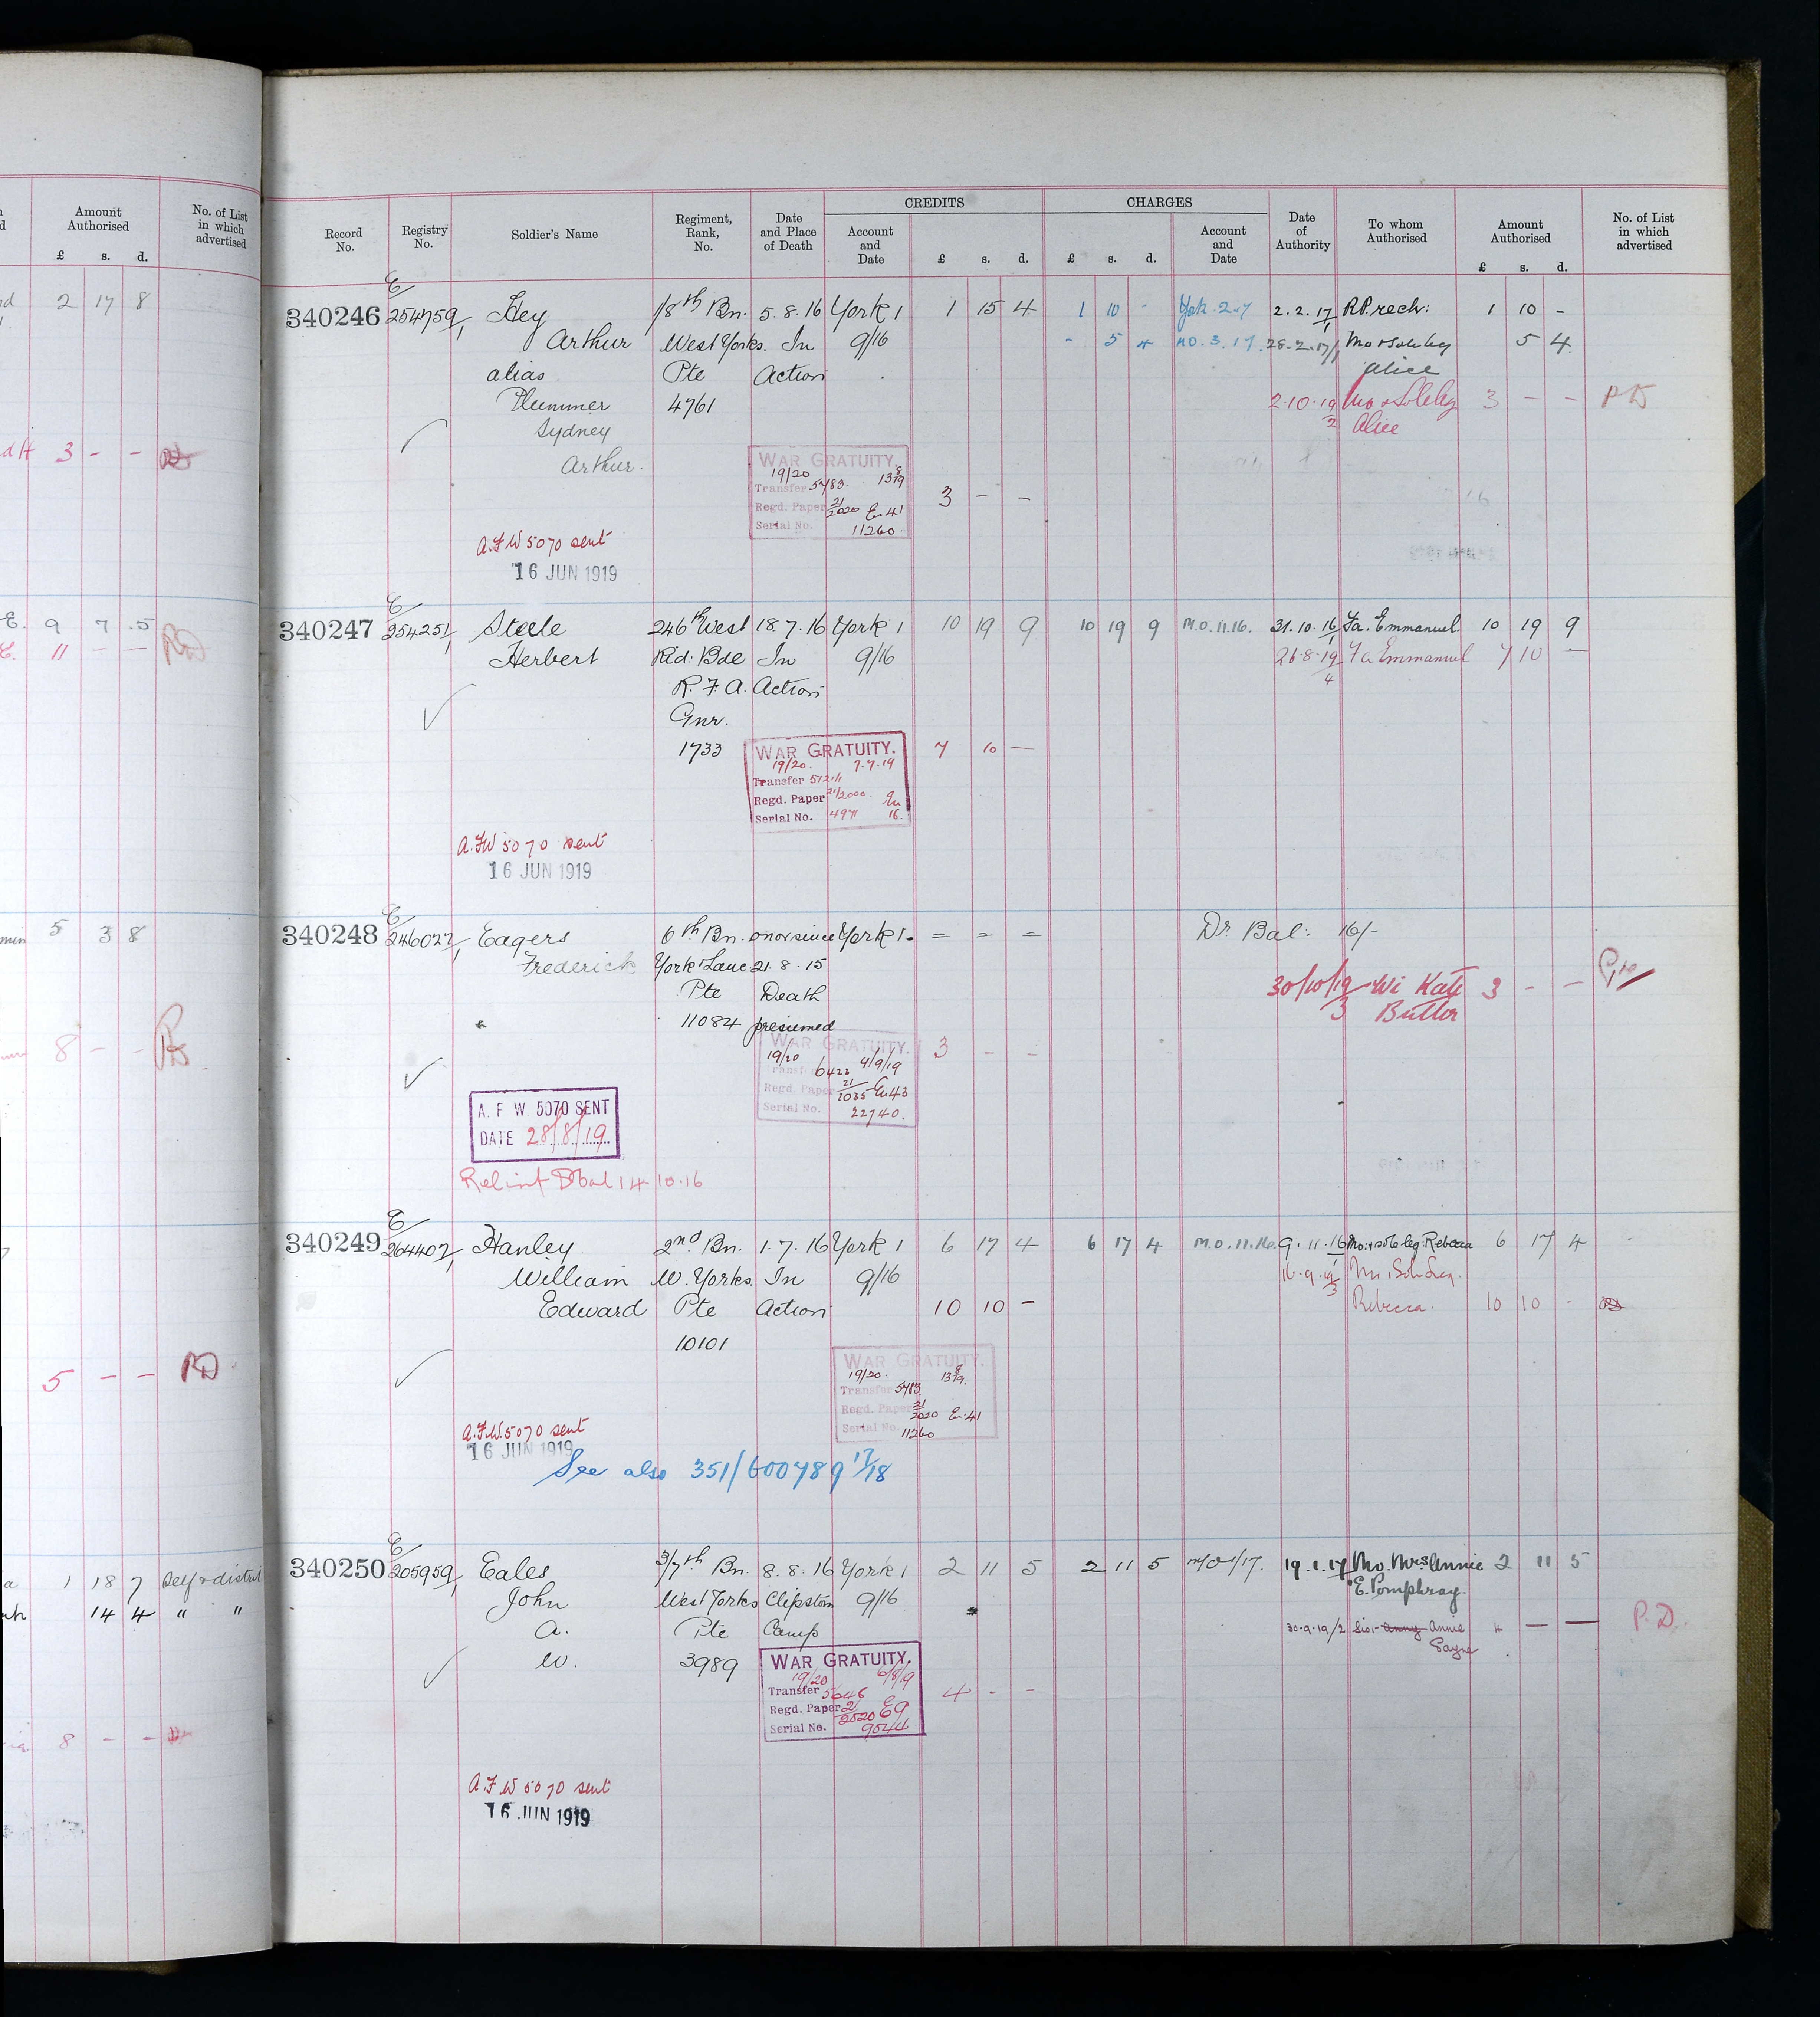 Amount Authorised
£ s. d.
No. of List in which advertised
2 17 8
3 - -
E. 9 7 5
11 - -
5 3 8
8 - -
5 - - PD
1 18 7 Self & district
14 4 " "
8 - -
CREDITS CHARGES
Record No.
Registry No.
Soldier's Name
Regiment, Rank, No.
Date and Place of Death
Account and Date
£ s. d.
£ s. d.
Account and Date
Date of Authority
To whom Authorised
Amount Authorised
£ s. d.
No. of List in which advertised
E/
340246 254759/1 Hey 1/8th Bn. 5.8.16 York 1 1 15 4 1 10 - York 2.17 2.2.17/1 1 10 -
Arthur West Yorks. In 9/16 - 5 4 M.O. 3.17. 28.2.17/1 Mo & Sole leg 5 4
alias Pte Action Alice
Plummer 4761 2.10.19/2 Mo & Sole leg 3 - - PD
Sydney Alice
Arthur.
WAR GRATUITY.
19/20 13/8/19
Transfer 5783
Regd. Paper 21/2020 En. 41 3 - -
Serial No. 11260.
A.F.W 5070 sent
16 JUN 1919
E/
340247 254251/1 Steele 246th West 18.7.16 York 1 10 19 9 10 19 9 M.O.11.16. 31.10.16/1 Fa. Emmanuel 10 19 9
Herbert Rid. Bde In 9/16 26.8.19/4 Fa Emmanuel 7 10 -
R.F.A. Action
Gnr.
1733
WAR GRATUITY. 7 10 -
19/20. 7.7.19
Transfer
Regd. Paper 21/2000 En 16.
Serial No. 4971
A.F.W 5070 sent
16 JUN 1919
E/
340248 246027/1 Eagers 6th Bn. on or since York 1. = = = Dr Bal: 16/-
Frederick York & Lanc 21.8.15
Pte Death 30/10/19/3 Wi Kate 3 - -
11084 presumed Butler
WAR GRATUITY. 3 - -
19/20 4/9/19
Transfer 6422
Regd. Paper 21/2035 En 43
Serial No. 22740.
A. F. W. 5070 SENT
DATE 28/8/19
14.10.16
E/
340249 264402/1 Hanley 2nd Bn. 1.7.16 York 1 6 17 4 6 17 4 M.O.11.16. 9.11.16/1 Mo: & sole leg: Rebecca 6 17 4
William W. Yorks. In 9/16 16.9.19/3 Mo. & Sole Leg.
Edward Pte Action 10 10 - Rebecca. 10 10 -
10101
WAR GRATUITY.
19/20. 13/8/19.
Transfer 5783
Regd. Paper 21/2020 En. 41
Serial No. 11260
A.F.W. 5070 sent
16 JUN 1919
See also 351/600789 17/18
E/
340250 205959/1 Eales 3/7th Bn. 8.8.16 York 1 2 11 5 2 11 5 19.1.17 Mo. Mrs Annie 2 11 5
John West Yorks Clipstone 9/16 E. Pomphray.
A. Pte Camp 30.9.19/2 Sis: Anny Annie 4 - - P.D.
W. 3989 Gayne
WAR GRATUITY.
19/20 6/8/19
Transfer 5646 4 - -
Regd. Paper 21/2020 E9
Serial No. 9544
A.F.W 5070 sent
16 JUN 1919